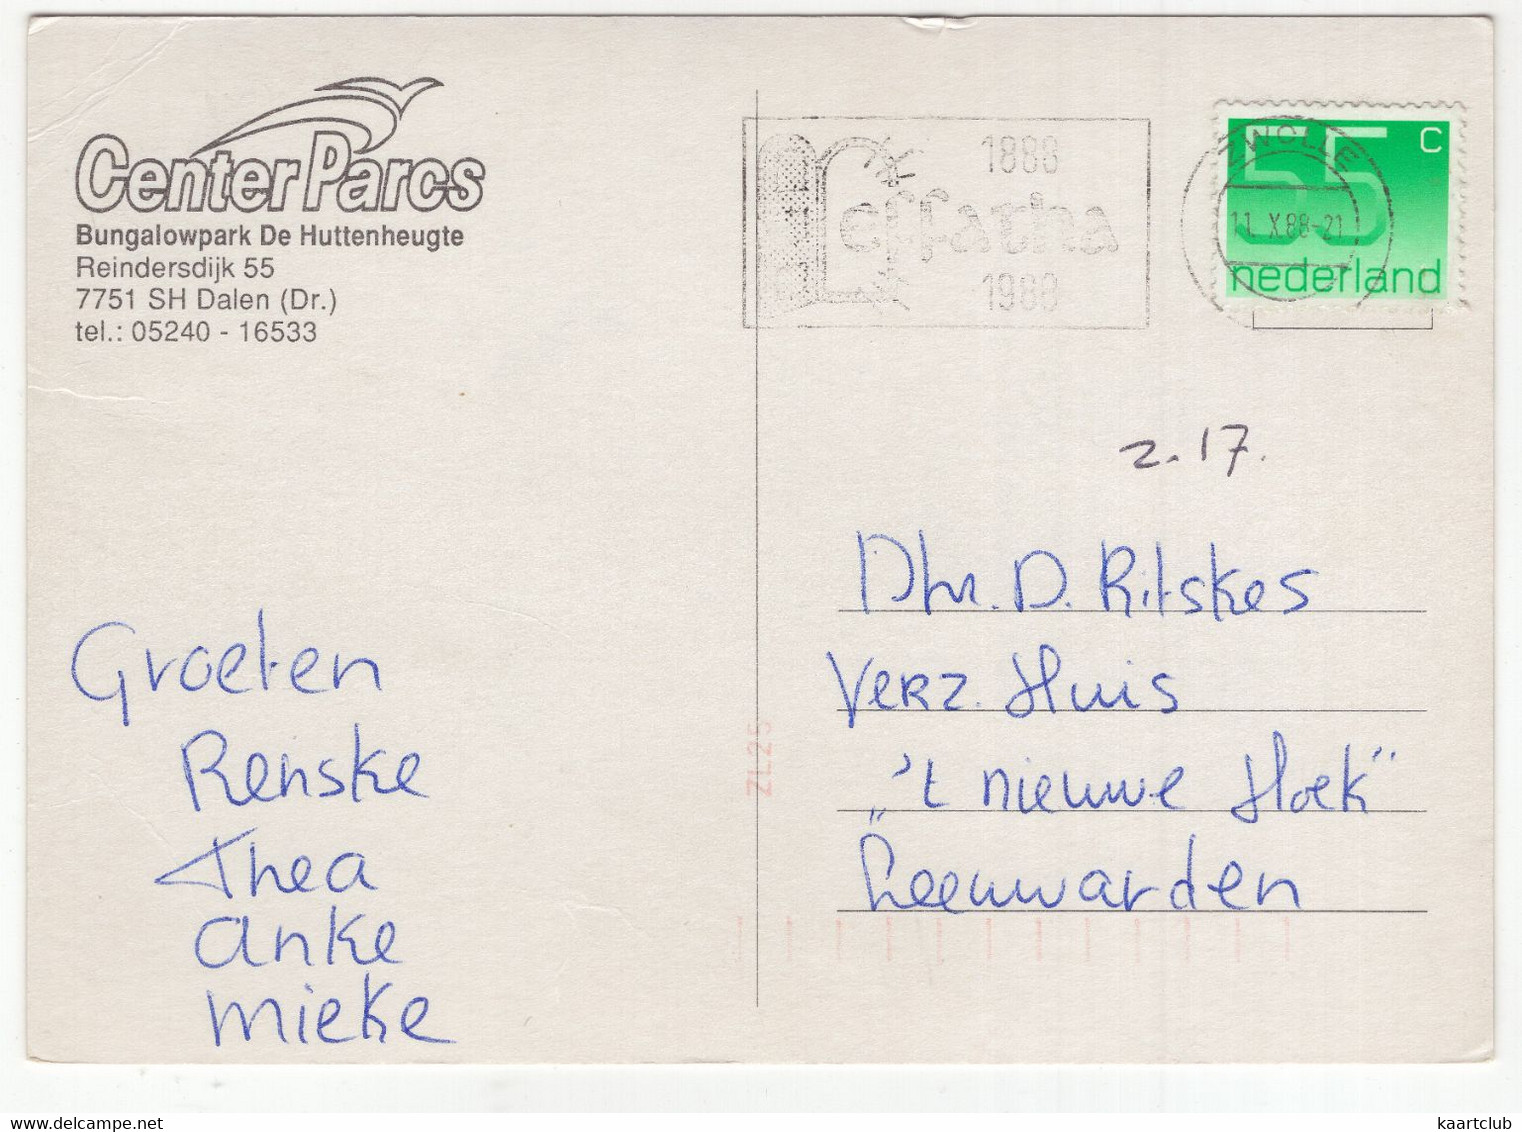 Center Parcs
Bungalowpark De Huttenheugte
Reindersdijk 55
7751 SH Dalen (Dr.)
tel.: 05240 - 16533
1888
effatha
1988
ZWOLLE
11.X.88-21
55 C
nederland
2.17.
Groeten
Renske
Thea
Anke
Mieke
Dhr. D. Ritskes
Verz. Huis
„'t nieuwe Hoek"
Leeuwarden
ZL25
kaartclub